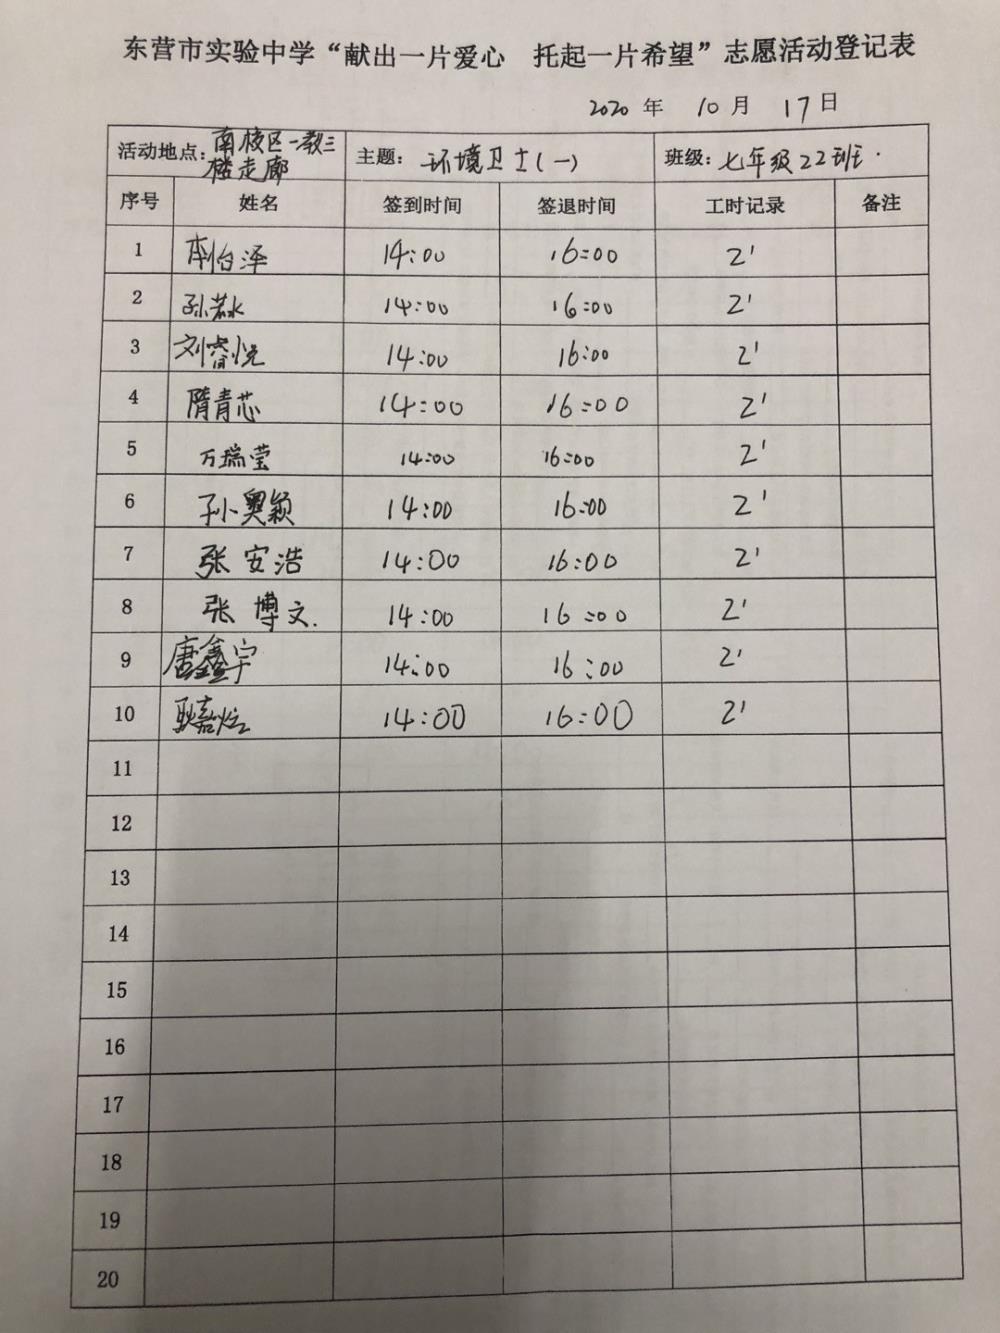 东营市实验中学“献出一片爱心 托起一片希望”志愿活动登记表
2020 年 10 月 17 日
活动地点：南校区一教三楼走廊 主题：环境卫士(一) 班级：七年级22班.
序号 姓名 签到时间 签退时间 工时记录 备注
1 李怡泽 14:00 16:00 2'
2 孙若水 14:00 16:00 2'
3 刘睿悦 14:00 16:00 2'
4 隋青芯 14:00 16:00 2'
5 万瑞莹 14:00 16:00 2'
6 孙奥颖 14:00 16:00 2'
7 张安浩 14:00 16:00 2'
8 张博文. 14:00 16:00 2'
9 唐鑫宇 14:00 16:00 2'
10 耿嘉 14:00 16:00 2'
11
12
13
14
15
16
17
18
19
20